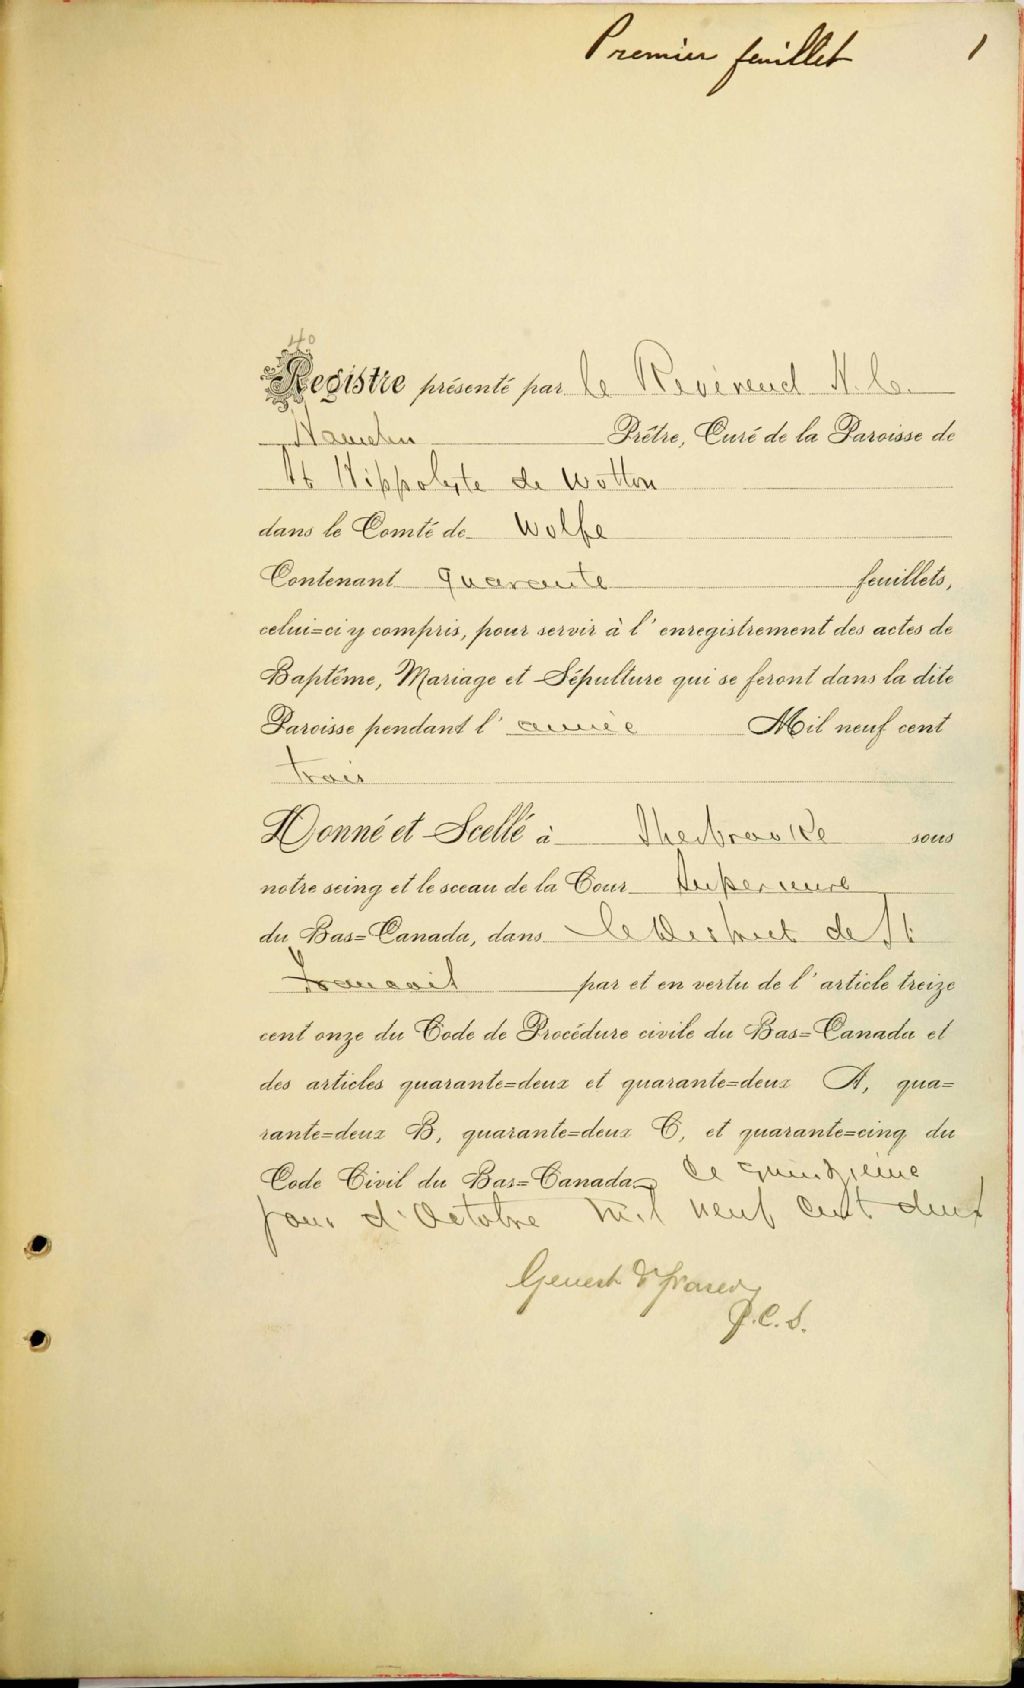 Premier feuillet 1
40
Registre présenté par le Révérend H. C.
Hamelin Prêtre, Curé de la Paroisse de
St Hippolyte de Wotton
dans le Comté de Wolfe
Contenant quarante feuillets,
celui=ci y compris, pour servir à l'enregistrement des actes de
Baptême, Mariage et Sépulture qui se feront dans la dite
Paroisse pendant l'année Mil neuf cent
trois
Donné et Scellé à Sherbrooke sous
notre seing et le sceau de la Cour Superieure
du Bas=Canada, dans le District de St
Francois par et en vertu de l'article treize
cent onze du Code de Procédure civile du Bas=Canada et
des articles quarante=deux et quarante=deux A, qua=
rante=deux B, quarante=deux C, et quarante=cinq du
Code Civil du Bas=Canada ce quinzieme
jour d'Octobre mil neuf cent deux
P.C.S.